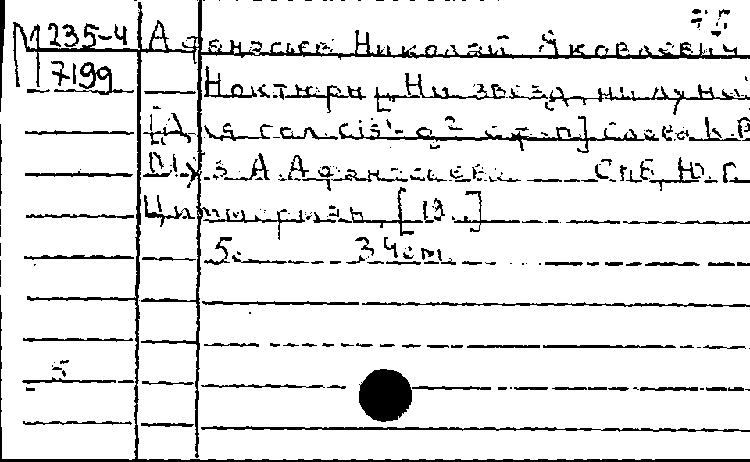 75
М 235-4 Афанасьев, Николай Яковлевич
7199
Ноктюрн [Ни звезд, ни луны
[Для гол. cis¹-g² с ф.-п.] Слова К. Р.
Муз. А. Афанасьева. Спб, Ю. Г.
Циммерман, [19..]
5 с. 34 см.
5